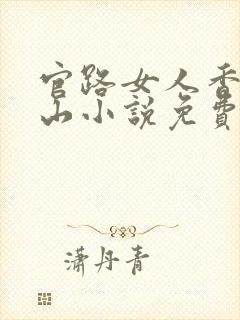 官路女人香
山小說免費
瀟丹青